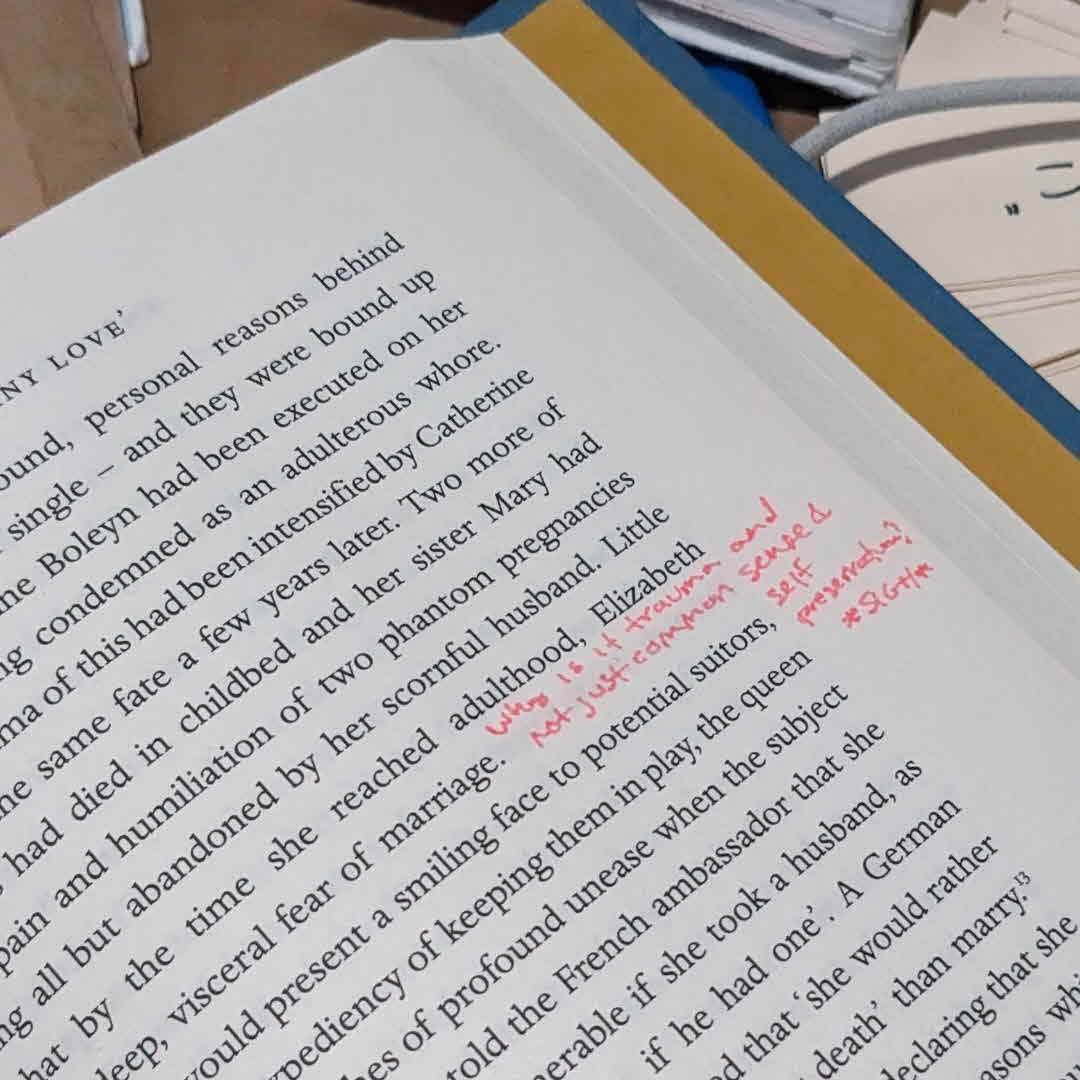 NY LOVE’
ound, personal reasons behind
single – and they were bound up
ne Boleyn had been executed on her
ng condemned as an adulterous whore.
ma of this had been intensified by Catherine
he same fate a few years later. Two more of
had died in childbed and her sister Mary had
pain and humiliation of two phantom pregnancies
ng all but abandoned by her scornful husband. Little
hat by the time she reached adulthood, Elizabeth
eep, visceral fear of marriage.
why is it trauma and
not just common sense &
self
preservation?
*SIGH*
would present a smiling face to potential suitors,
xpediency of keeping them in play, the queen
hes of profound unease when the subject
told the French ambassador that she
nerable if she took a husband, as
if he had one’. A German
ed that ‘she would rather
death’ than marry.13
declaring that she
asons whi